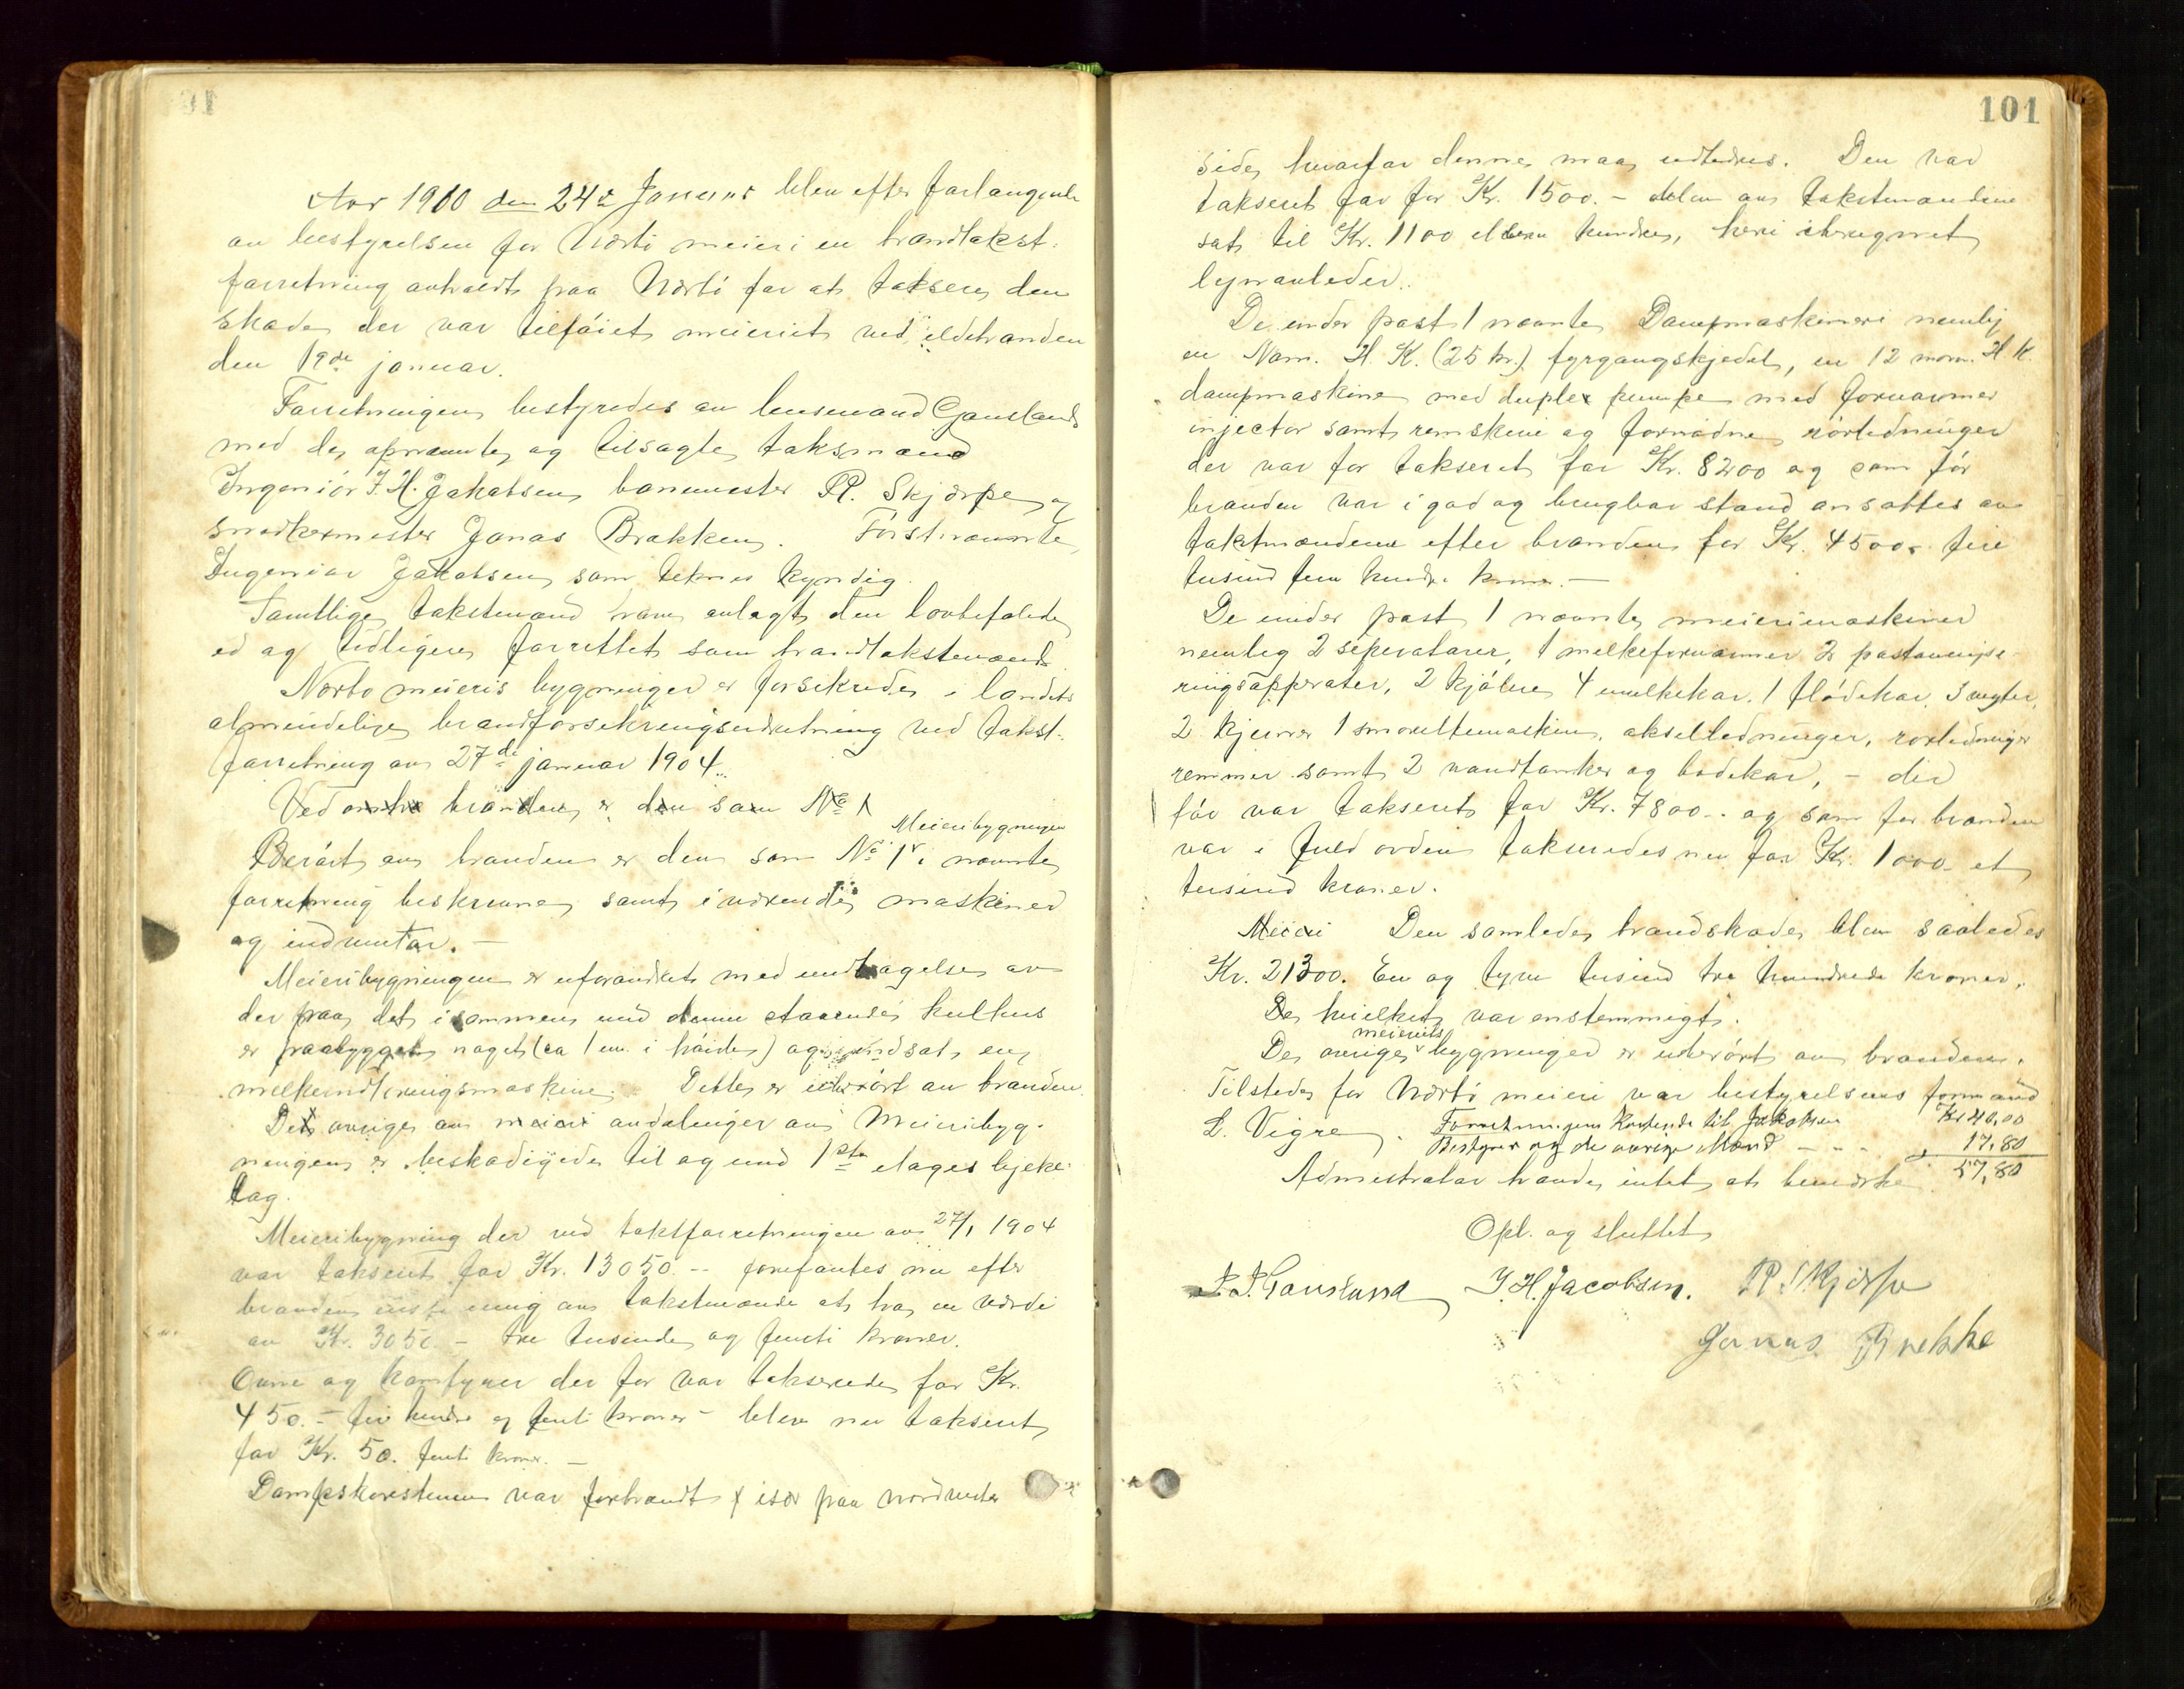 Aar 1910 den 24de Januar blev efter forlangende
av bestyrelsen for Nærbö meieri en brandtakst-
forretning avholdt paa Nærbö for at taksere den
skade der var tilföiet meieriet ved ildebranden
den 19de januar.
Forretningen bestyredes av lensmand Gausland
med de opnævnte og tilsagte taksmænd
Ingeniör J. H. Jakobsen, banemester P. Skjærpe og
snedkermester Jonas Brekken. Förstnævnte
Ingeniör Jakobsen som teknisk kyndig.
Samtlige takstmænd har avlagt den lovbefalede
ed og tidligere forrettet som brandtakstmænd.
Nærbö meieris bygninger er forsikrede i landets
almindelige brandforsikringsindretning ved takst-
forretning av 27de januar 1904.
Ved branden er den som No 1
Berört av branden er den som No 1 Meieribygningen i nævnte
forretning beskrevne, samt iværende maskiner
og indventar. —
Meieribygningen er uforandret med undtagelse av
der paa det i sammen med denne staaende kulhus
er paabygget noget (ca 1 m. i höide) og indsat en
melkeindtiningsmaskine. Dette er uberört av branden.
De övrige av meieri avdelinger av Meieribyg-
ningen er beskadigede til og med 1ste etages bjelke-
lag.
Meieribygning der ved takstforretningen av 27/1 1904
var takseret for Kr. 13050 -- forefantes nu efter
branden av takstmændene at ha en værdi
av Kr. 3050 - tre tusinde og femti kroner.
Ovne og komfyrer der för var takserede for Kr.
450.- fire hundre og femti kroner - blev nu takseret
for Kr. 50. femti kroner. —
Dampskorstenen var forbrændt især paa nordvestre
101
side, hvorfor denne maa udbedres. Den var
takseret för for Kr. 1500.- blev av takstmændene
sat til Kr. 1100 elleve hundre, heri iberegnet
lynavleder.
De under post 1 nævnte Dampmaskineri nemlig
en Nom. H. K. (25 kv.) fyrgangskjedel, en 12 nom. H K.
dampmaskine med duplex pumpe med forvarmer
injector samt remskive og fornödne rörledninger
der var för takseret for Kr. 8200 og som för
branden var i god og brugbar stand ansattes av
takstmændene efter branden for Kr. 4500. fire
tusind fem hundre kroner. —
De under post 1 nævnte meierimaskiner
nemlig 2 seperatorer, 1 melkeforvarmer 2 pastöurise-
ringsapperater, 2 kjölere 4 melkekar, 1 flödekar, 3 vegter,
2 kjerner 1 smöreltemaskine, akselledninger, rorledninger
remmer samt 2 vandtanker og badekar, - der
för var takseret for Kr. 7800.. og som för branden
var i fuld orden takseredes nu for Kr. 1000 - et
tusind kroner.
Meieri Den samlede brandskade blev saaledes
Kr. 21300. En og tyve tusind tre hundrede kroner.
De hvilket var enstemmigt.
De övrige meieriets bygninger er uberört av branden.
Tilstede for Nærbö meieri var bestyrelsens formand
L. Vigre. Forretningens Kostende til Jakobsen Kr 40,00
Bestyrer og de övrige Mænd - - - 17,80
57,80
Admistrator havde intet at bemerke
Opl. og sluttet
J. J. Gausland J. H. Jacobsen. P Skjærpe
Jonas Brekke